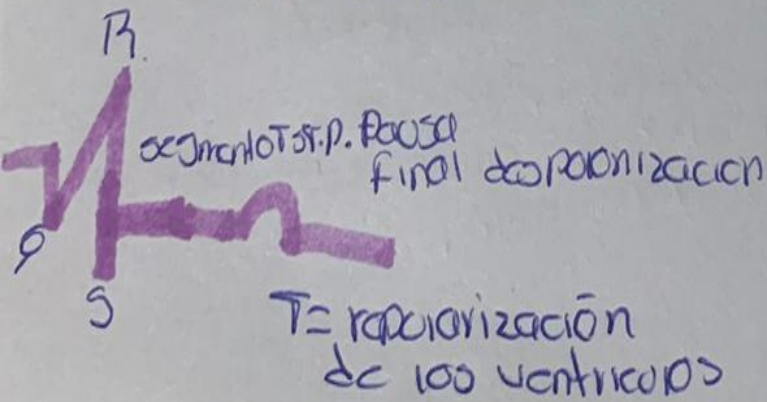 R
segmento ST. P. Pausa
final despolarización
Q
S
T= repolarización
de los ventriculos